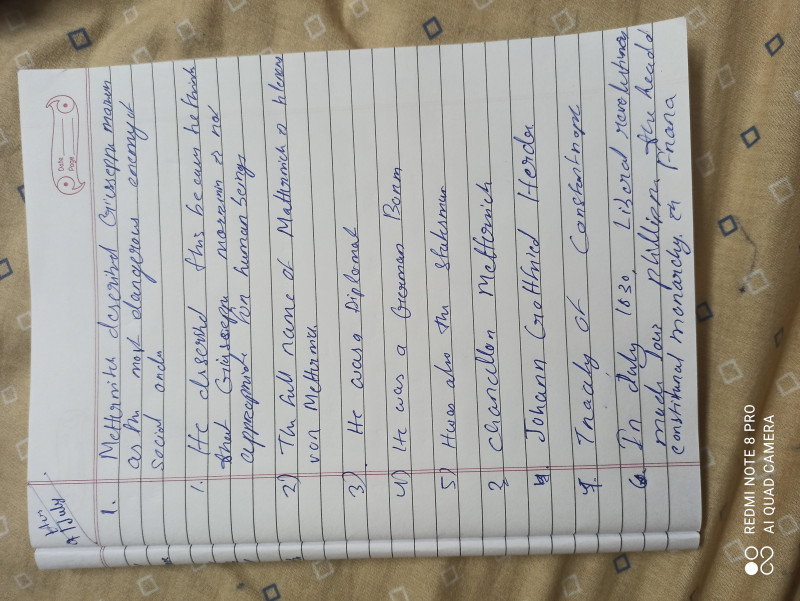 Date
Page
H/W
9 July
1. Metternich described Giuseppe mazzini
as the most dangerous enemy of
social order
1. He described this because he think
that Giuseppe mazzini is not
appropriate for human beings
2) The full name of Metternich is
von Metternich
3) He was a Diplomat
4) He was a German Born
5) He was also the statesman
2 chancellor Metternich
4. Johann Gottfried Herder
7. Treaty of Constantinople
6. In July 1830, Liberal revolutionaries
made Louis phillippe the head
constitutional monarchy in France
REDMI NOTE 8 PRO
AI QUAD CAMERA